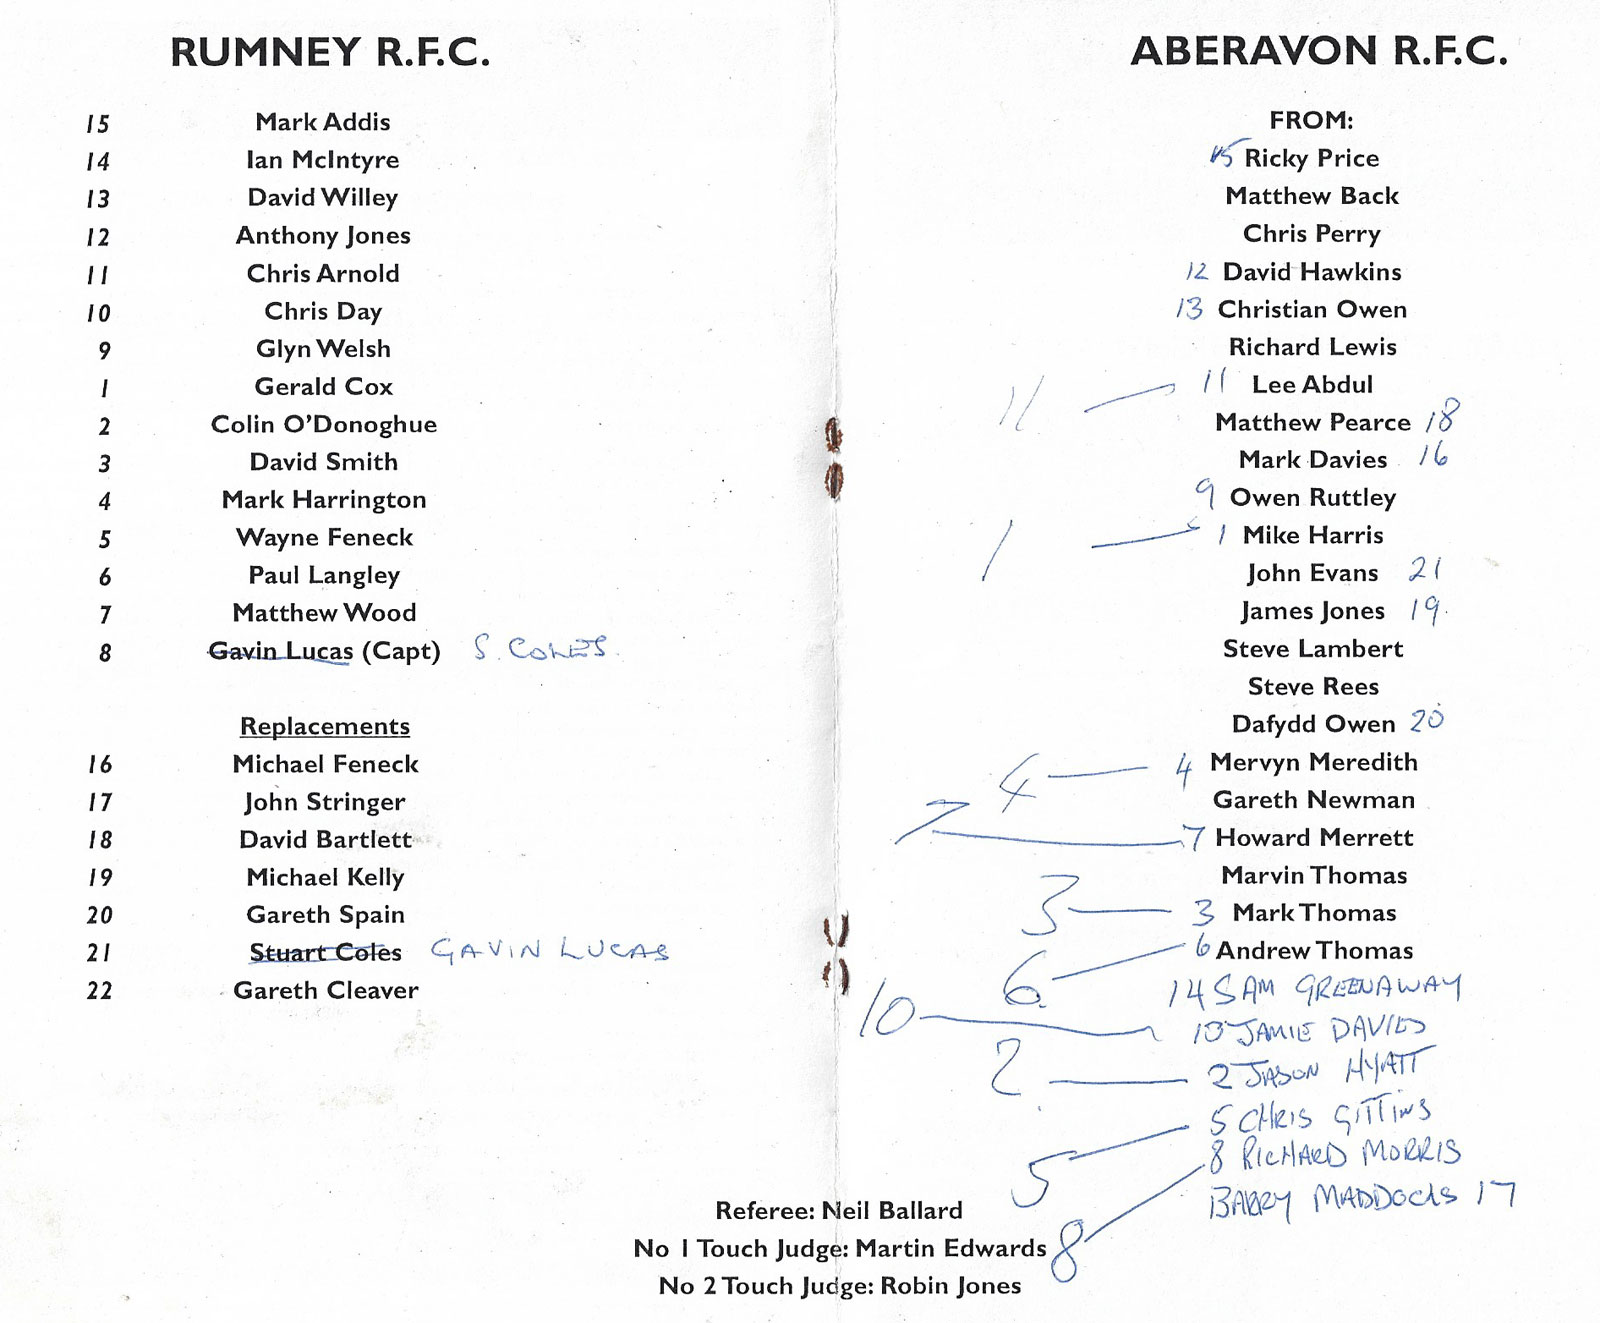 RUMNEY R.F.C.
15 Mark Addis
14 Ian McIntyre
13 David Willey
12 Anthony Jones
11 Chris Arnold
10 Chris Day
9 Glyn Welsh
1 Gerald Cox
2 Colin O'Donoghue
3 David Smith
4 Mark Harrington
5 Wayne Feneck
6 Paul Langley
7 Matthew Wood
8 Gavin Lucas (Capt) S. COLES.
Replacements
16 Michael Feneck
17 John Stringer
18 David Bartlett
19 Michael Kelly
20 Gareth Spain
21 Stuart Coles GAVIN LUCAS
22 Gareth Cleaver
ABERAVON R.F.C.
FROM:
15 Ricky Price
Matthew Back
Chris Perry
12 David Hawkins
13 Christian Owen
Richard Lewis
11 11 Lee Abdul
Matthew Pearce 18
Mark Davies 16
9 Owen Ruttley
1 1 Mike Harris
John Evans 21
James Jones 19
Steve Lambert
Steve Rees
Dafydd Owen 20
4 4 Mervyn Meredith
Gareth Newman
7 7 Howard Merrett
Marvin Thomas
3 3 Mark Thomas
6 6 Andrew Thomas
14 SAM GREENAWAY
10 10 JAMIE DAVIES
2 2 JASON HYATT
5 5 CHRIS GITTINS
8 8 RICHARD MORRIS
BARRY MADDOCKS 17
Referee: Neil Ballard
No 1 Touch Judge: Martin Edwards
No 2 Touch Judge: Robin Jones